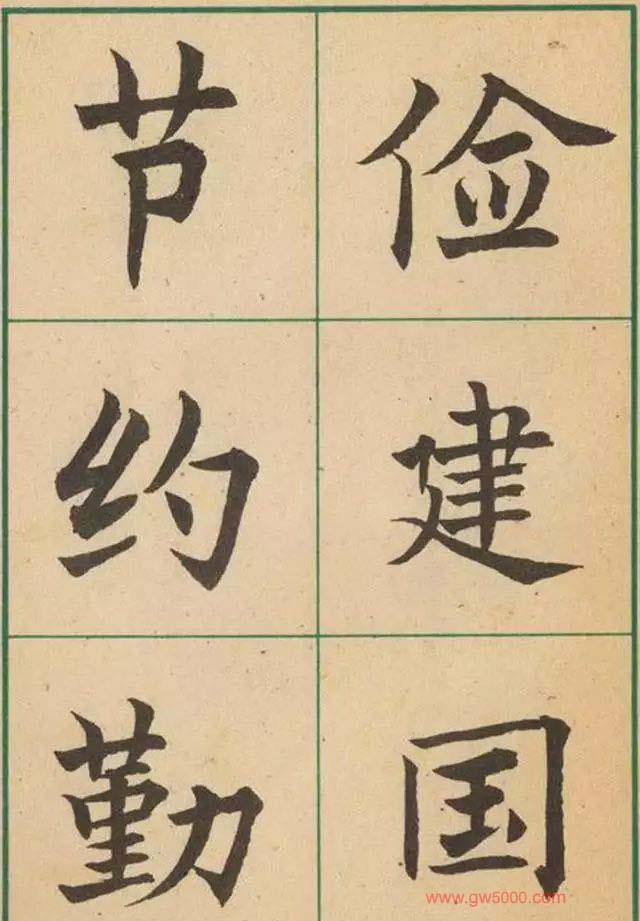 节约勤
俭建国
www.gw5000.com